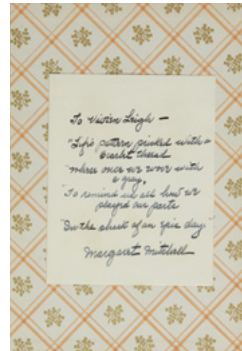 To Vivien Leigh —
"Life's pattern pricked with a
scarlet thread
where once we wove with
a gray,
"To remind us all how we
played our parts
"In the shock of an epic day."
Margaret Mitchell